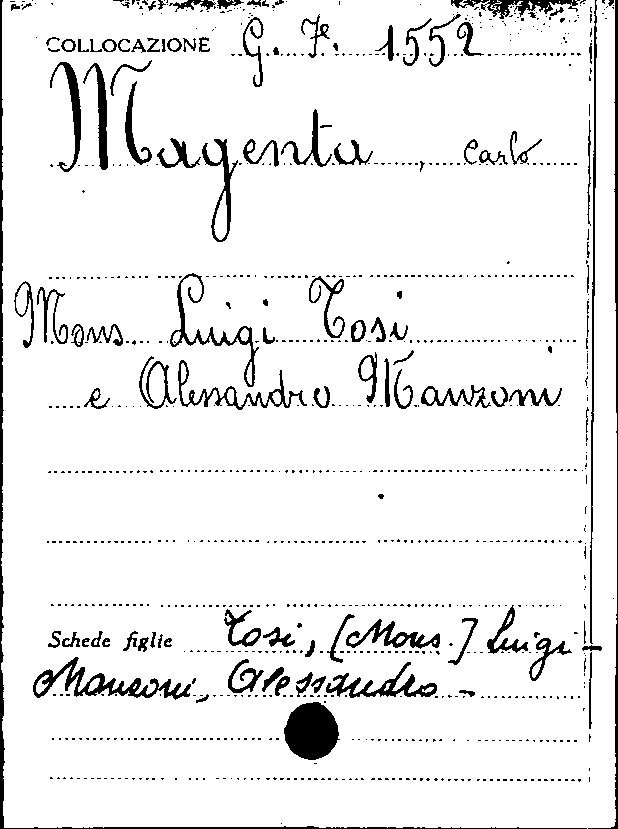 COLLOCAZIONE G. Fe. 1552
Magenta, Carlo
Mons. Luigi Tosi
e Alessandro Manzoni
Schede figlie Tosi, [Mons.] Luigi -
Manzoni, Alessandro -